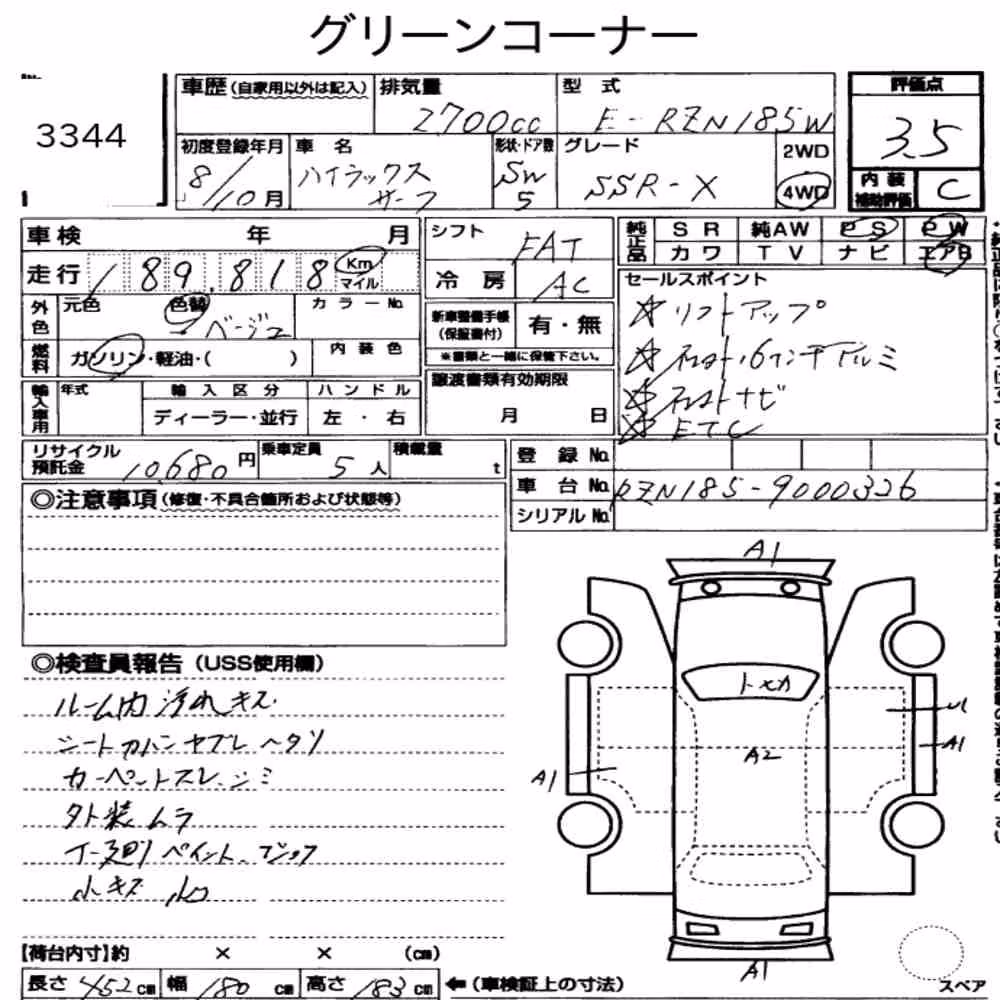 グリーンコーナー
3344
車歴 (自家用以外は記入) 排気量 型式 評価点
2700cc E-RZN185W 3.5
初度登録年月 車名 形状・ドア数 グレード 2WD
8/10月 ハイラックスサーフ SW 5 SSR-X 4WD
内装補助評価 C
車検 年 月 シフト FAT
純正品 SR 純AW PS PW
カワ TV ナビ エアB
走行 189,818 Km マイル 冷房 AC
セールスポイント
☆リフトアップ
☆社外16インチアルミ
☆社外ナビ
☆ETC
外色 元色 色替 カラーNo.
→ベージュ
新車整備手帳(保証書付) 有・無
※書類と一緒に保管下さい。
燃料 ガソリン・軽油・( ) 内装色
譲渡書類有効期限
月 日
輸入車用 年式 輸入区分 ハンドル
ディーラー・並行 左・右
リサイクル預託金 10,680円 乗車定員 5人 積載量 t
登録No.
車台No. RZN185-9000326
シリアルNo.
◎注意事項 (修復・不具合箇所および状態等)
◎検査員報告 (USS使用欄)
ルーム内 汚れキズ
シートカバーヤブレ ヘタリ
カーペットスレ、シミ
外装ムラ
下廻りペイント、ブラック
小キズ 凹
A1
トメカ
A2
A1
A1
A1
スペア
【荷台内寸】約 × × (cm)
長さ 452cm 幅 180cm 高さ 183cm ←(車検証上の寸法)